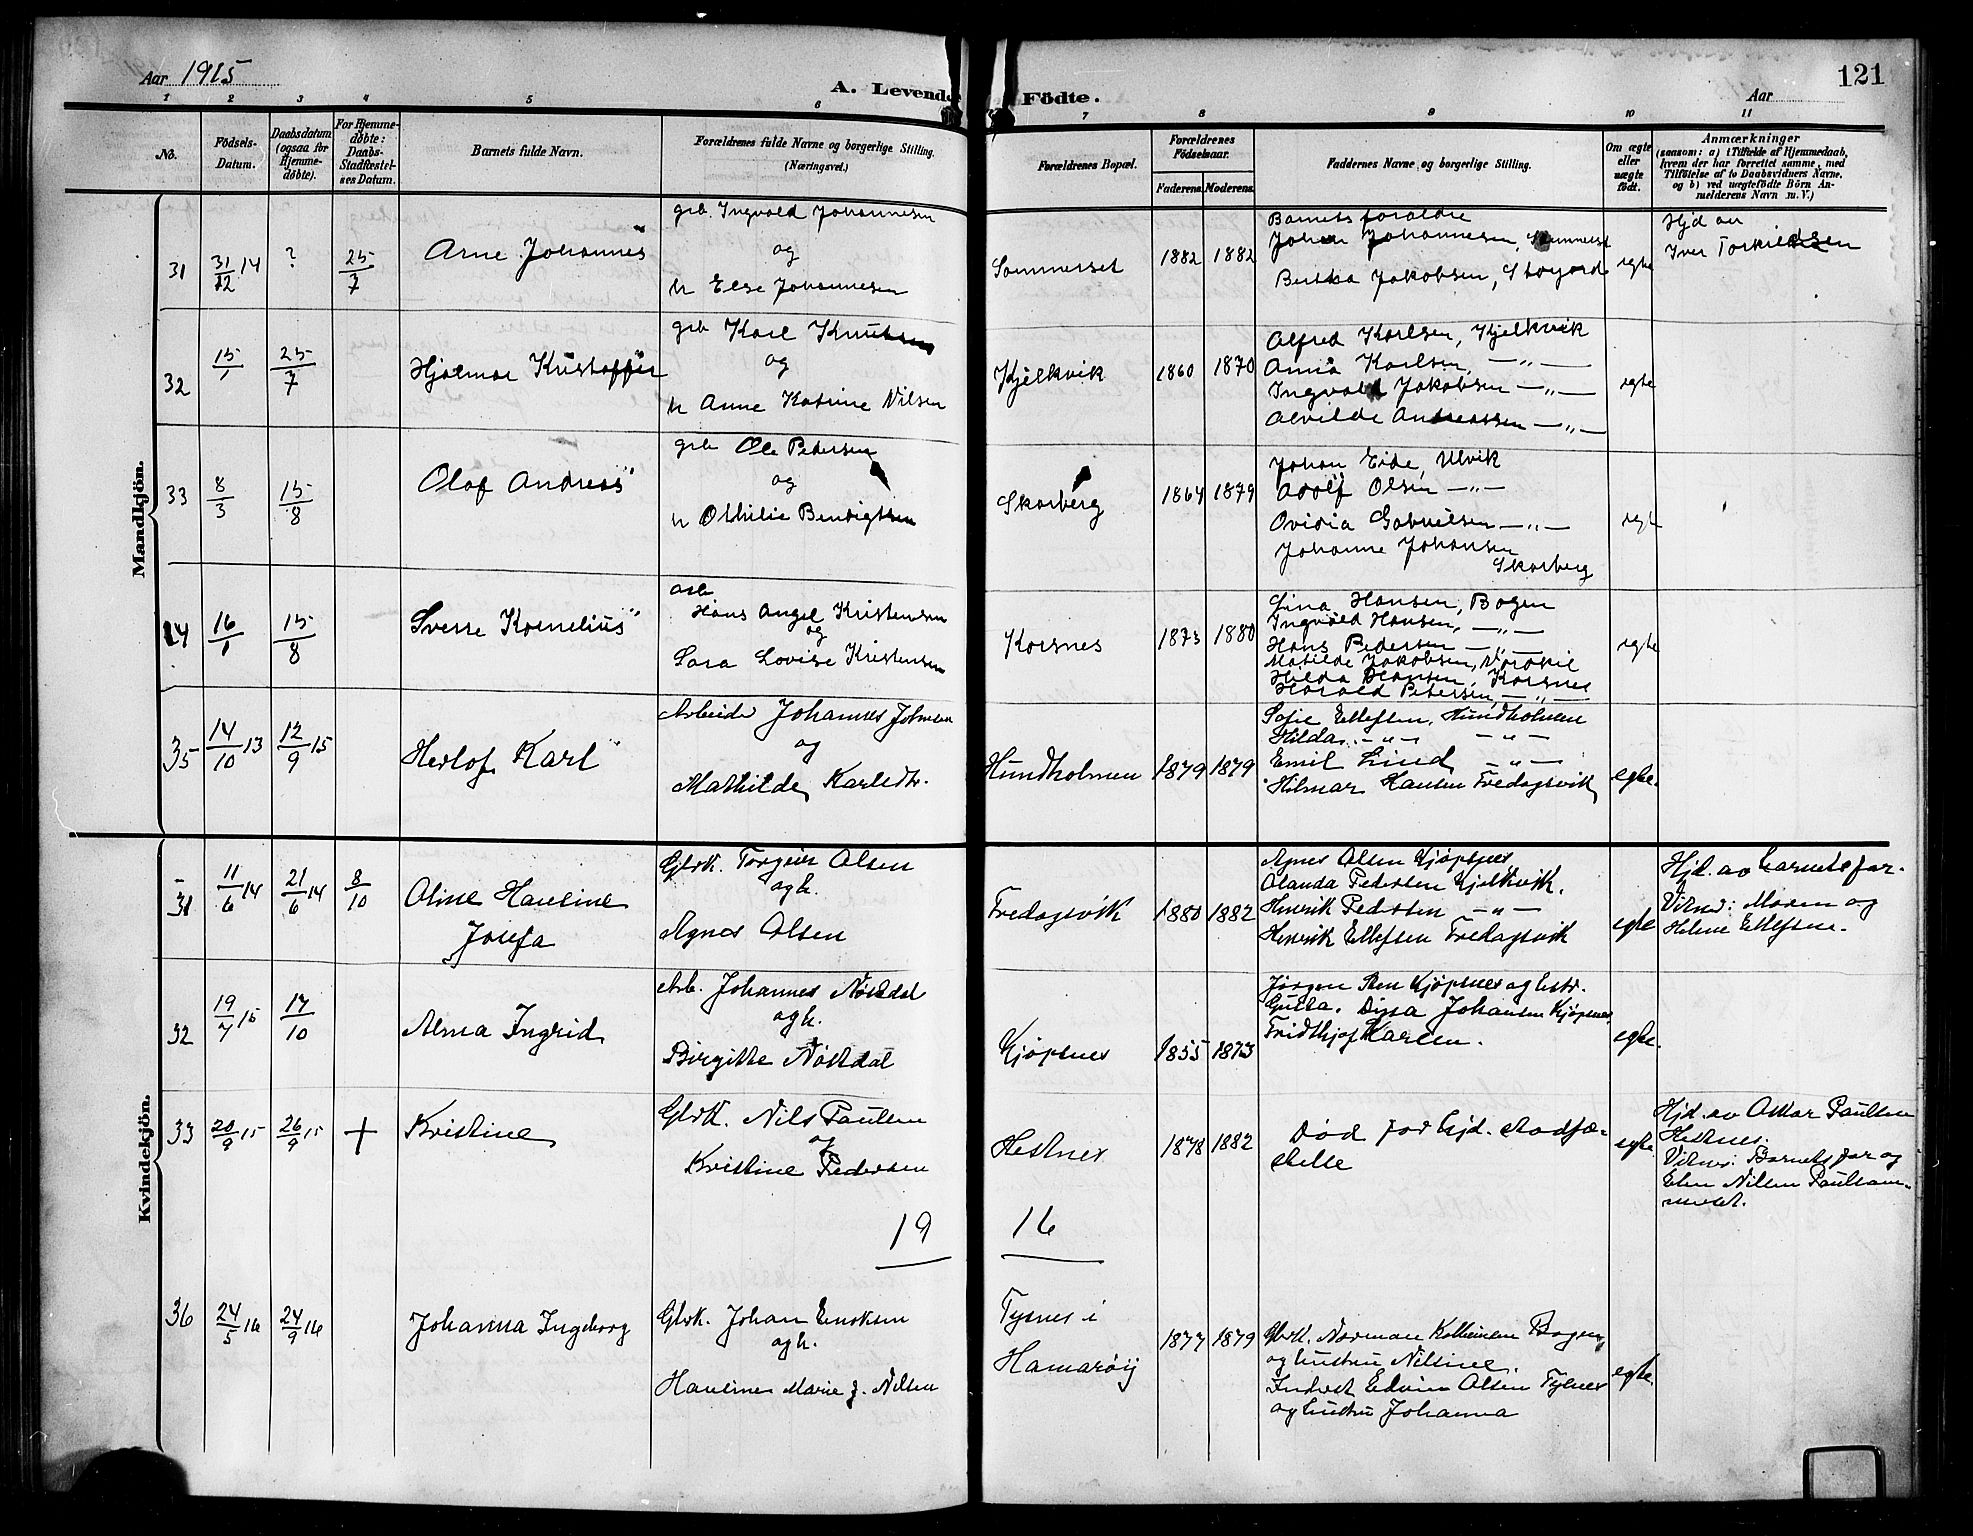 121
Aar 1915
A. Levende Födte.
Aar
1 2 3 4 5 6 7 8 9 10 11
No.
Födsels-
Datum.
Daabsdatum
(ogsaa för
Hjemme-
döbte).
For Hjemme-
döbte:
Daabs-
Stadfestel-
ses Datum.
Barnets fulde Navn.
Forældrenes fulde Navne og borgerlige Stilling.
(Næringsvei.)
Forældrenes Bopæl.
Forældrenes
Födselsaar.
Faderens. Moderens.
Faddernes Navne og borgerlige Stilling.
Om ægte
eller
uægte
födt.
Anmærkninger
(saasom: a) i Tilfælde af Hjemmedaab,
hvem der har forrettet samme, med
Tilföielse af to Daabsvidners Navne,
og b) ved uægtefödte Börn An-
melderens Navn m. V.)
Mandkjön.
31 31/12 14 ? 25/7
Arne Johannes
grb. Ingvald Johannesen
og
h Else Johannesen
Sommerset 1882 1882
Barnets foraldre
Johan Johannesen, Sommerset
Bertha Jakobsen,
egte
Hjd av
Iver Torkildsen
32 15/1 25/7
Hjalmar Kristoffer
grb Karl Knutsen
og
h Anne Katrine Nilsen
Kjelkvik 1860 1870
Alfred Karlsen, Kjelkvik
Anna Karlsen, —"—
Ingvald Jakobsen —"—
Alvilde Andreassen —"—
egte
33 8/3 15/8
Olaf Andreas
grb Ole Pedersen
og
h Othilie Bendigtsen
Skarberg 1864 1879
Johan Eide, Ulvik
Adolf Olsen —"—
Ovidia Gabrielsen —"—
Johanne Johansen
Skarberg
egte
34 16/1 15/8
Sverre Kornelius
arb
Hans Angel Kristensen
og
Sara Lovise Kristensen
Korsnes 1873 1880
Lina Hansen, Bogen
Ingvald Hansen, —"—
Hans Pedersen —"—
Matilde Jakobsen,
Hilda Hansen, Korsnes
Harald Petersen —"—
egte
35 14/10 13 12/9 15
Herlof Karl
Arbeider Johannes Johnsen
og
Mathilde Karlsdtr.
Hundholmen 1879 1879
Sofie Ellefsen, Hundholmen
Hilda —"— —"—
Emil Lind —"—
Hilmar Hansen Fredagsvik
egte.
Kvindekjön.
31 11/6 14 21/6 14 8/10
Oline Hansine
Josefa
Gbrk. Torgeir Olsen
og h.
Agnes Olsen
Fredagsvik 1880 1882
Agnes Olsen Kjøpsnes
Olanda Pedersen Kjelkvik.
Henrik Pedersen —"—
Henrik Ellefsen Fredagsvik
egte
Hjd. av barnets far.
Vitner: Maren og
Helene Ellefsen.
32 19/7 15 17/10
Alma Ingrid
Arb. Johannes Nøstdal
og h.
Birgitte Nøstdal
Kjøpsnes 1855 1873
Jørgen Sten Kjøpsnes og hstr.
Gusta. Dina Johansen Kjøpsnes,
Fridthjof Karlsen.
egte.
33 20/9 15 26/9 15 +
Kristine
Gbrk. Nils Paulsen
og
Kristine Pedersen
Hestnes 1878 1882
Død før hjd. stadfæ-
stelse
egte
Hjd. av Oskar Paulsen
Hestnes.
Vitner: Barnets far og
Elen Nilsen
19 16
36 24/5 16 24/9 16
Johanna Ingeborg
Gbrk. Johan Enoksen
og h.
Hansine Marie f. Nilsen
Tysnes i
Hamarøy
1877 1879
Gbrk. Norman Bogen
og hustru Nilsine.
Inderst Edvin Olsen Tysnes
og hustru Johanna
egte.